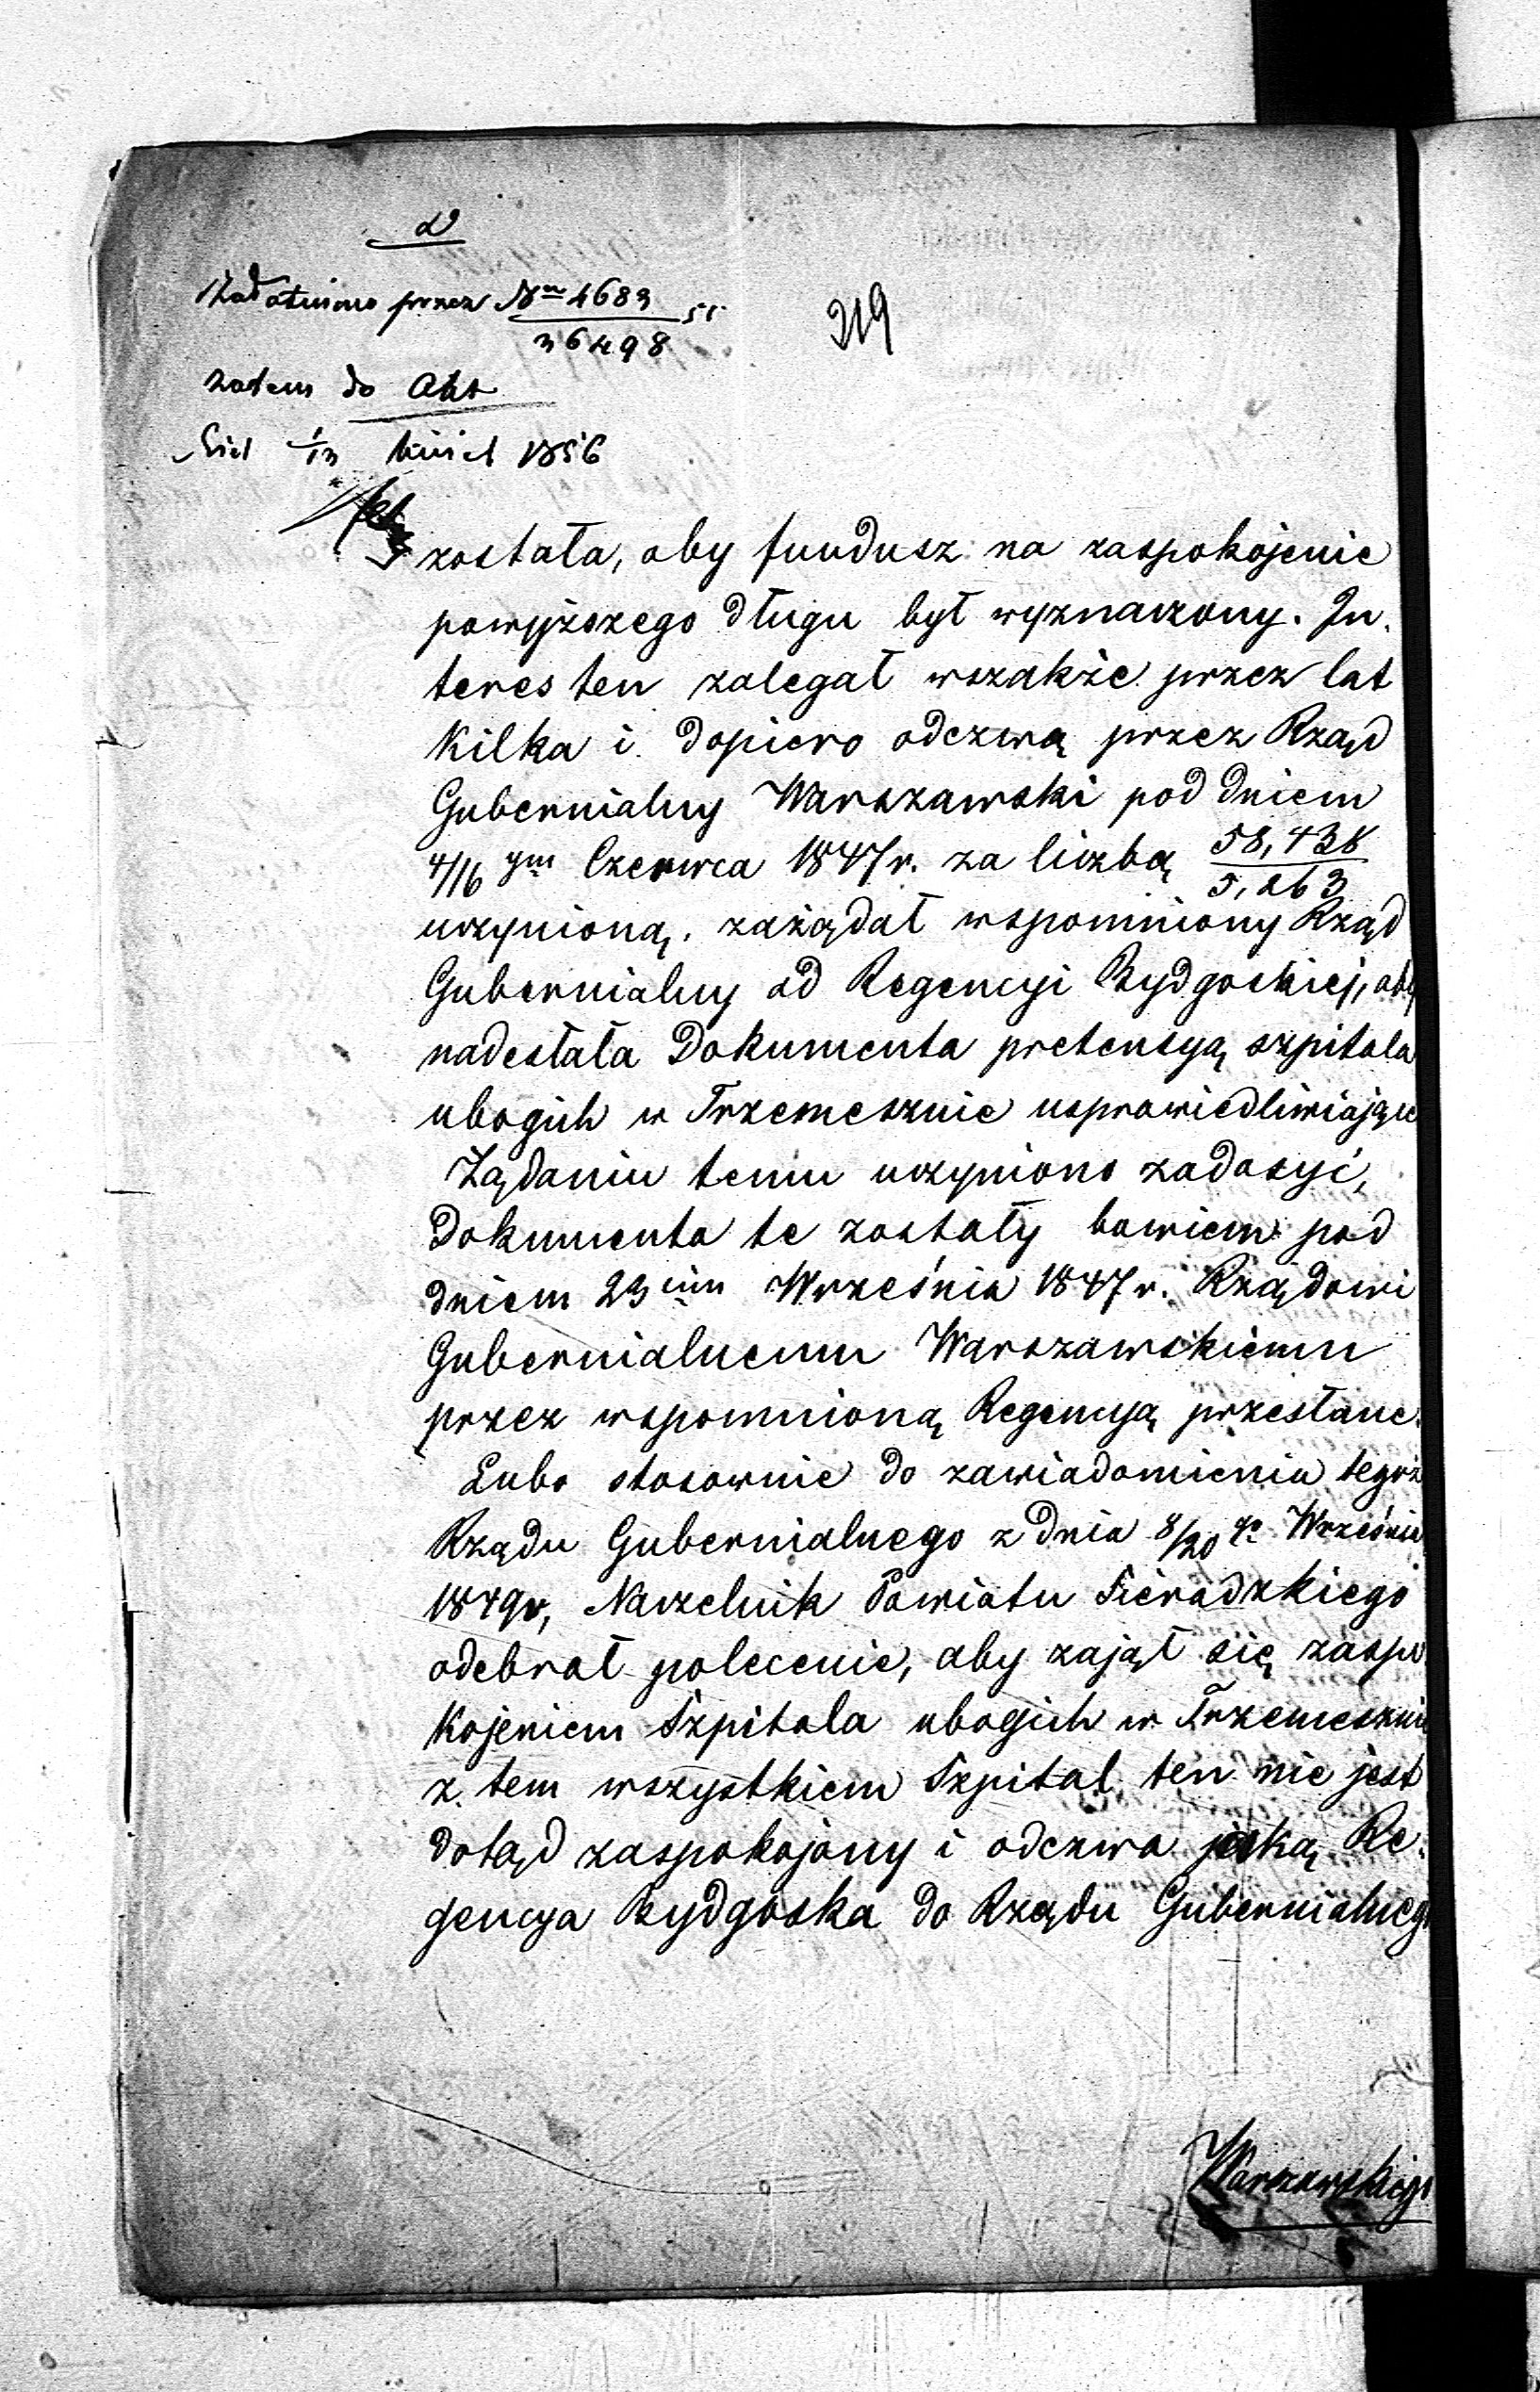 przez Nrn 4683 / 36498 55
219
zatem do Akt
1/13 1856
została, aby fundusz na zaspokojenie
powyższego długu był wyznaczony. In-
teres ten zalegał wszakże przez lat
kilka i dopiero odezwą przez Rząd
Gubernialny Warszawski pod dniem
4/16 ym Czerwca 1847 r. za liczbą 58,438 / 5,263
uczynioną, zażądał wspomniony Rząd
Gubernialny od Regencyi Bydgoskiej, aby
nadesłała Dokumenta pretensyą szpitala
ubogich w Trzemesznie usprawiedliwiające
Żądaniu temu uczyniono zadosyć,
Dokumenta te zostały bowiem pod
dniem 23cim Września 1847 r. Rządowi
Gubernialnemu Warszawskiemu
przez wspomnioną Regencyą przesłane.
Lubo stosownie do zawiadomienia tegoż
Rządu Gubernialnego z dnia 8/20 go Września
1849 r, Naczelnik Powiatu Sieradzkiego
odebrał polecenie, aby zajął się zaspo
kojeniem Szpitala ubogich w Trzemesznie
z tem wszystkiem Szpital ten nie jest
dotąd zaspokojony i odezwa jaką Re-
gencya Bydgoska do Rządu Gubernialnego
Warszawskiego